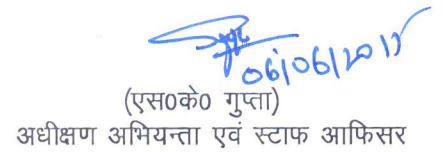 06/06/2015
(एस0के0 गुप्ता)
अधीक्षण अभियन्ता एवं स्टाफ आफिसर